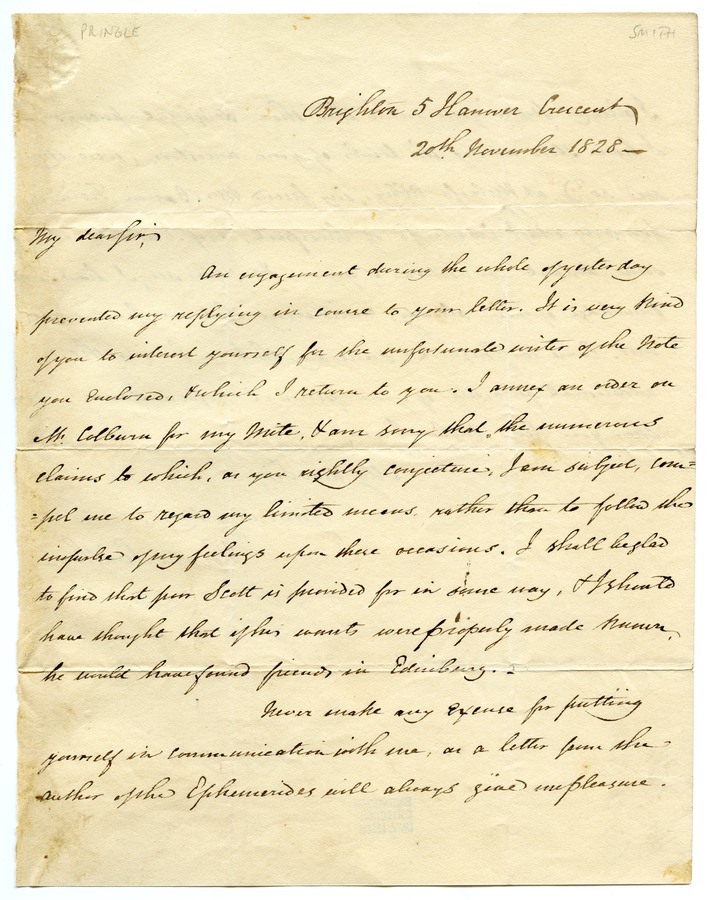 PRINGLE
SMITH
Brighton 5 Hanover Crescent
20th. November 1828 —
My dear Sir,
An engagement during the whole of yesterday
prevented my replying in course to your letter. It is very kind
of you to interest yourself for the unfortunate writer of the Note
you enclosed, & which I return to you. I annex an order on
Mr. Colburn for my Mite, & am sorry that the numerous
claims to which, as you rightly conjecture, I am subject, com=
=pel me to regard my limited means, rather than to follow the
impulse of my feelings upon these occasions. I shall be glad
to find that poor Scott is provided for in some way, & I should
have thought that if his wants were properly made known,
he would have found friends in Edinburg. —
Never make any excuse for putting
yourself in communication with me, as a letter from the
author of the Ephemerides will always give me pleasure.